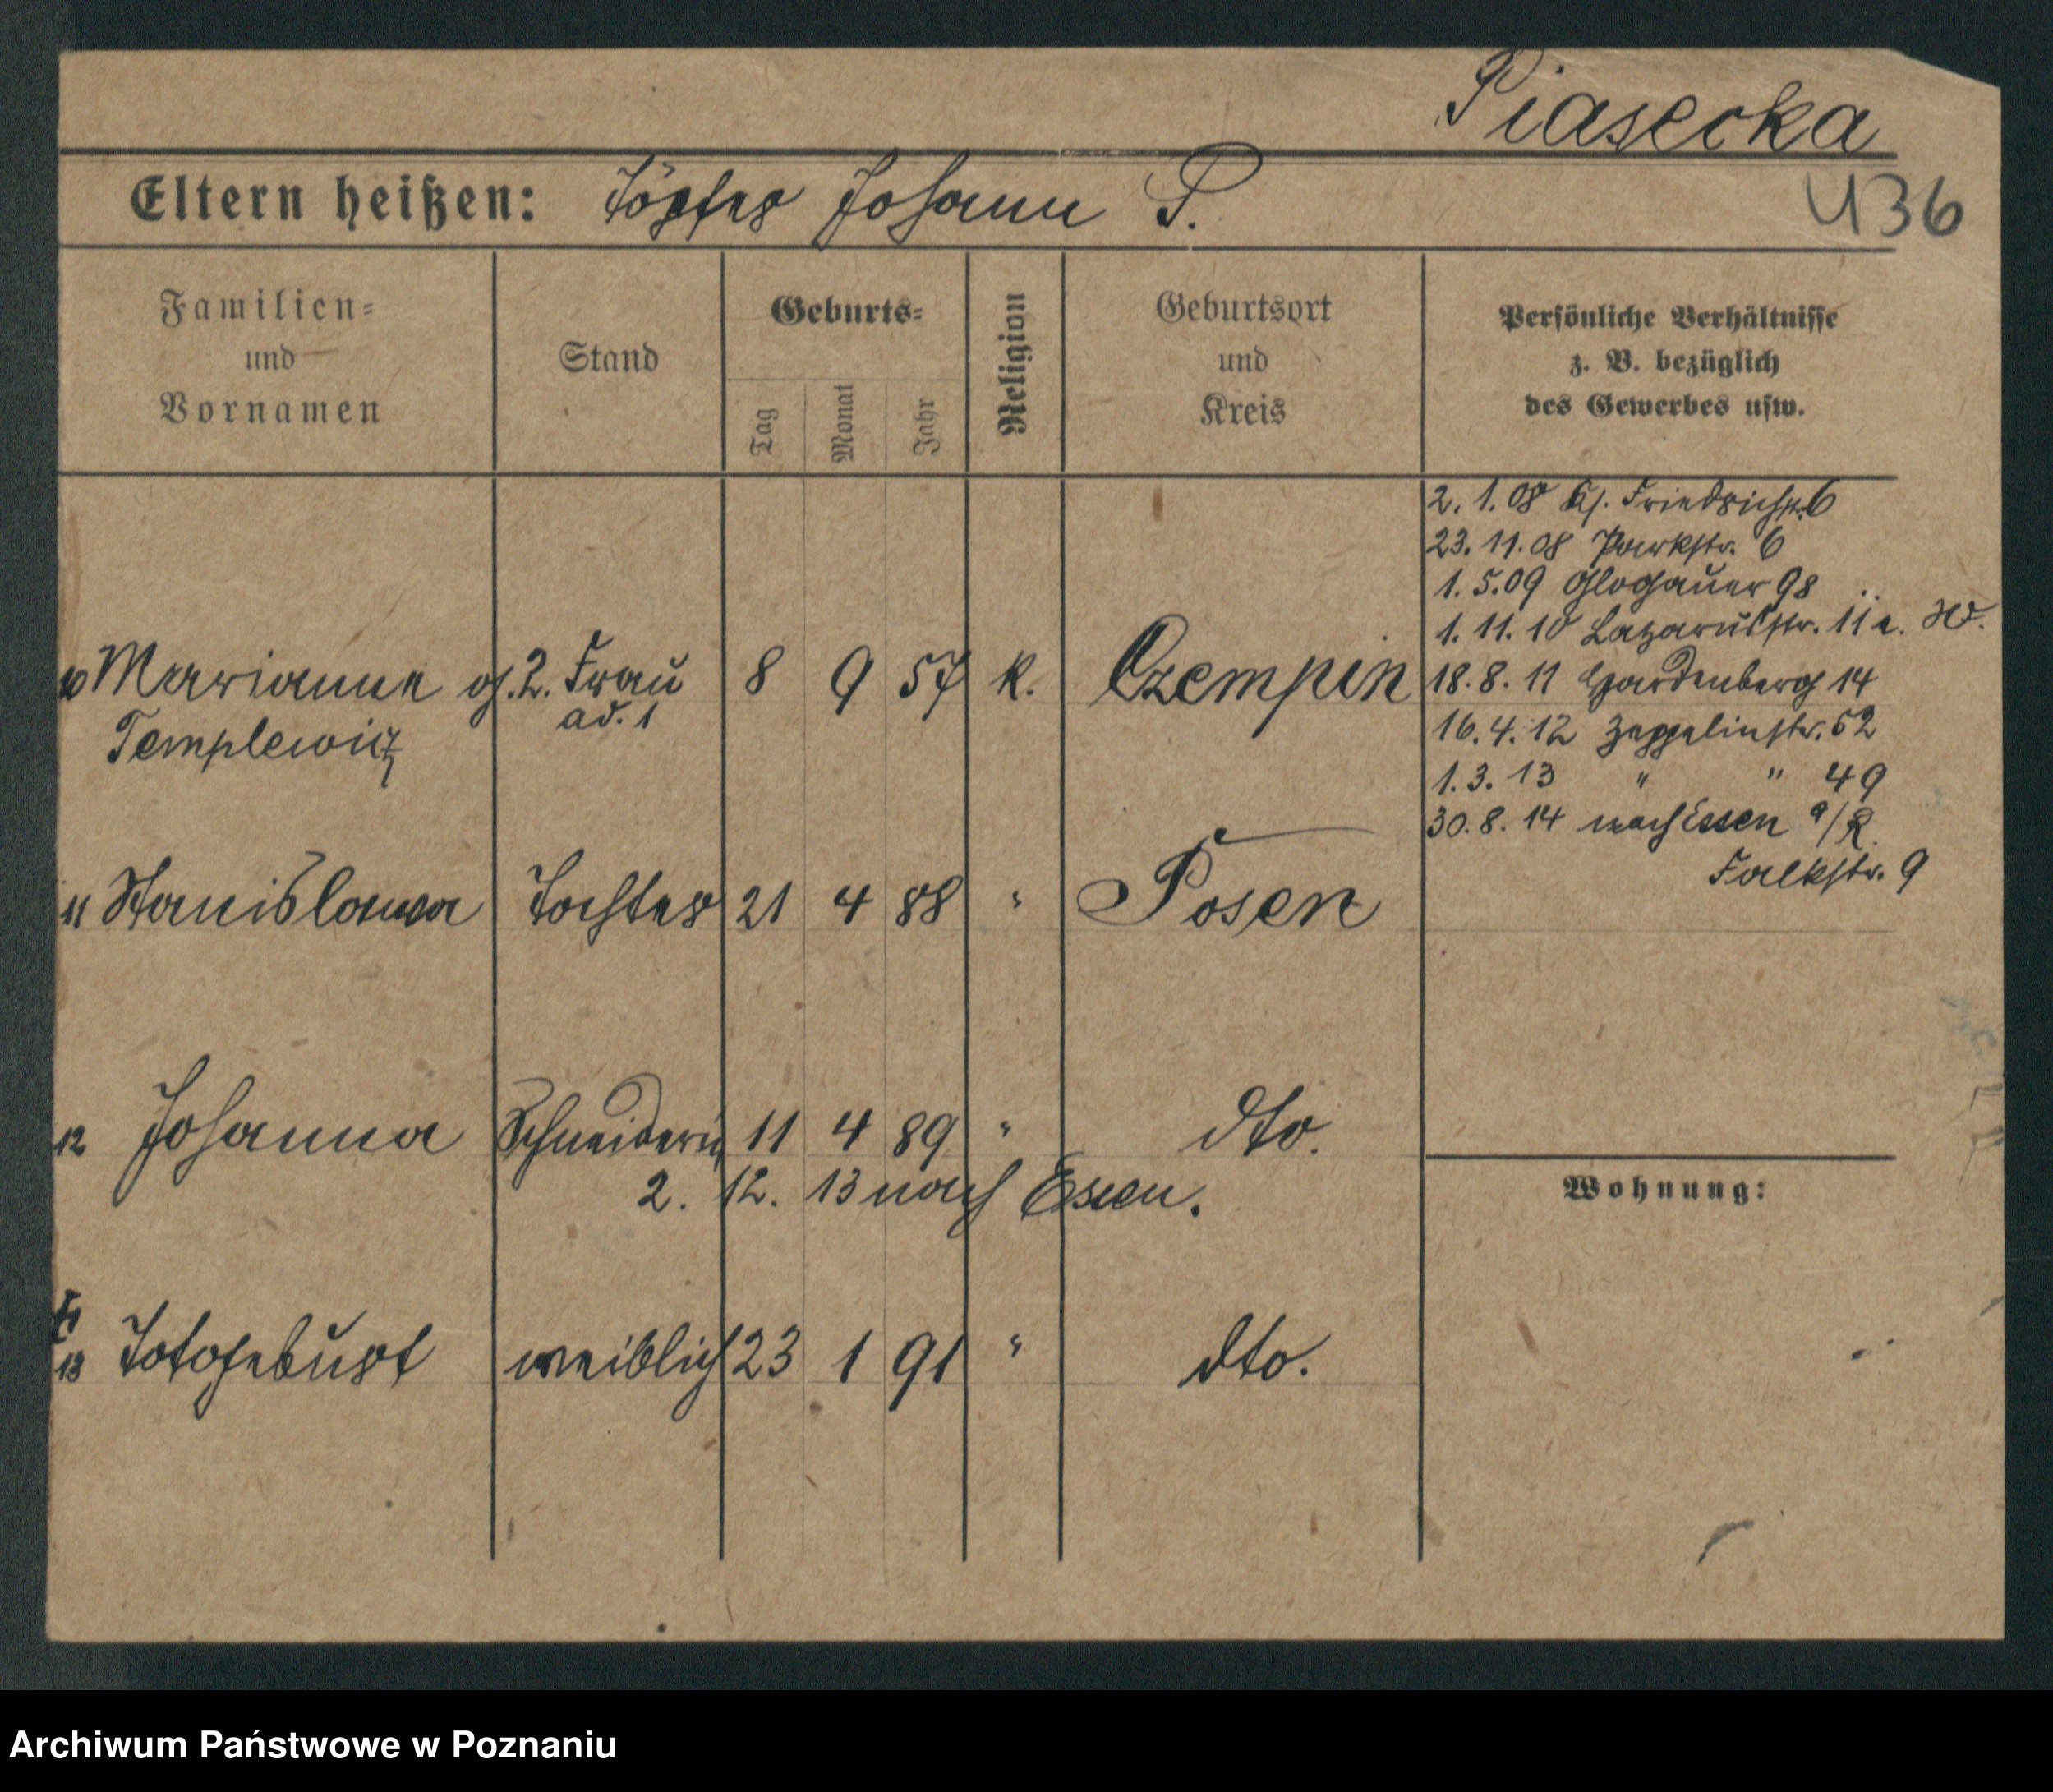 Piasecka
Eltern heißen: Töpfer Johann P.
436
Familien-
und
Vornamen
Stand
Geburts-
Tag
Monat
Jahr
Religion
Geburtsort
und
Kreis
Persönliche Verhältnisse
z. B. bezüglich
des Gewerbes usw.
2. 1. 08 Kl. Friedrichstr. 6
23. 11. 08 Parkstr. 6
1. 5. 09 Glogauer 98
1. 11. 10 Lazarusstr. 11 a.
10 Marianna g. 2. Frau 8 9 57 k. Czempin
18. 8. 11 Hardenberg 14
Templewitz ad. 1
16. 4. 12 Zeppelinstr. 52
1. 3. 13 " " 49
30. 8. 14 nach Essen a/R
Falkstr. 9
11 Stanislawa Tochter 21 4 88 " Posen
12 Johanna Schneiderin 11 4 89 " dto.
2. 12. 13 nach Essen.
Wohnung:
13 Totgeburt weiblich 23 1 91 " dto.
Archiwum Państwowe w Poznaniu